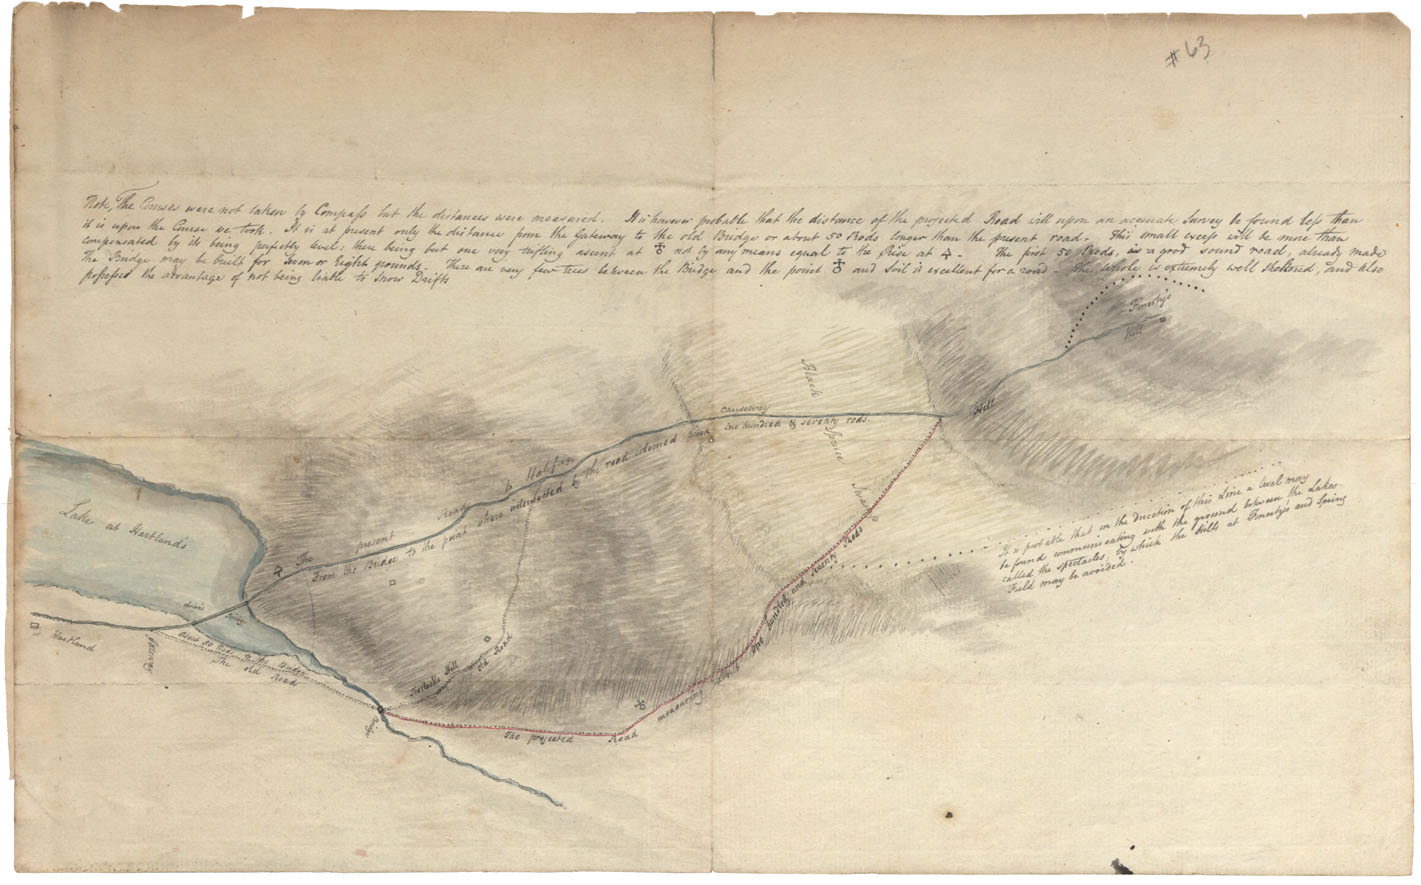 # 63
Note, The Courses were not taken by Compass but the distances were measured. It is however probable that the distance of the projected Road will upon an accurate Survey be found less than
it is upon the Course we took. It is at present only the distance from the Gateway to the old Bridge or about 50 Rods longer than the present road. This small excess will be more than
compensated by its being perfectly level; there being but one very trifling ascent at ♁ not by any means equal to the Rise at 4 - The first 50 Rods, is a good sound road, already made
The Bridge may be built for Seven or Eight pounds. There are very few trees between the Bridge and the point ♁ and Soil is excellent for a road - The whole is extremely well sheltered, and also
possesses the advantage of not being liable to Snow Drifts
Finerty's
Hill
Hill
Black Spruce Swamp
causeway
The present Road to Halifax
From the Bridge to the point where intersected by the road identified two hundred & seventy rods.
Lake at Hartland's
It is probable that in the direction of this Line a level may
be found communicating with the ground between the Lakes
called the Spectacles, by which the Hills at Finerty's and Spring
Field may be avoided.
Hartland
Gateway
Bridge
about 50 Rods to the Bridge
The old Road
Hill
Old Road
Bridge
The projected Road measuring Three Hundred and Seventy Rods